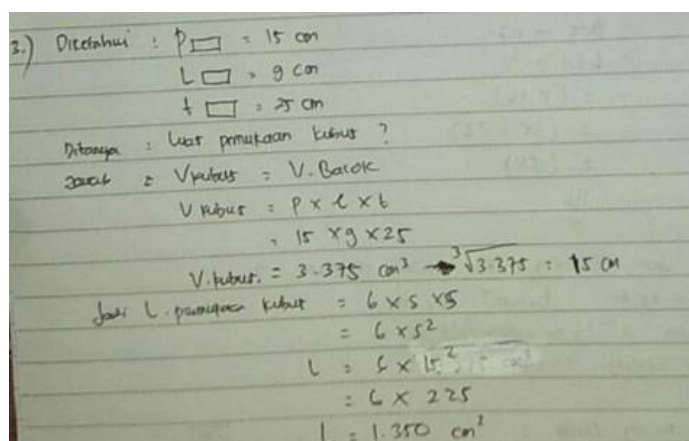 3.) Diketahui : P▭ = 15 cm
L ▭ = 9 cm
t ▭ = 25 cm
Ditanya : Luas permukaan kubus ?
Jawab = V kubus = V. Balok
V kubus = p x l x t
= 15 x 9 x 25
V. kubus. = 3.375 cm³ → ³√3.375 = 15 cm
Jadi L. permukaan kubus = 6 x s x s
= 6 x s²
L = 6 x 15²
= 6 x 225
L = 1.350 cm²